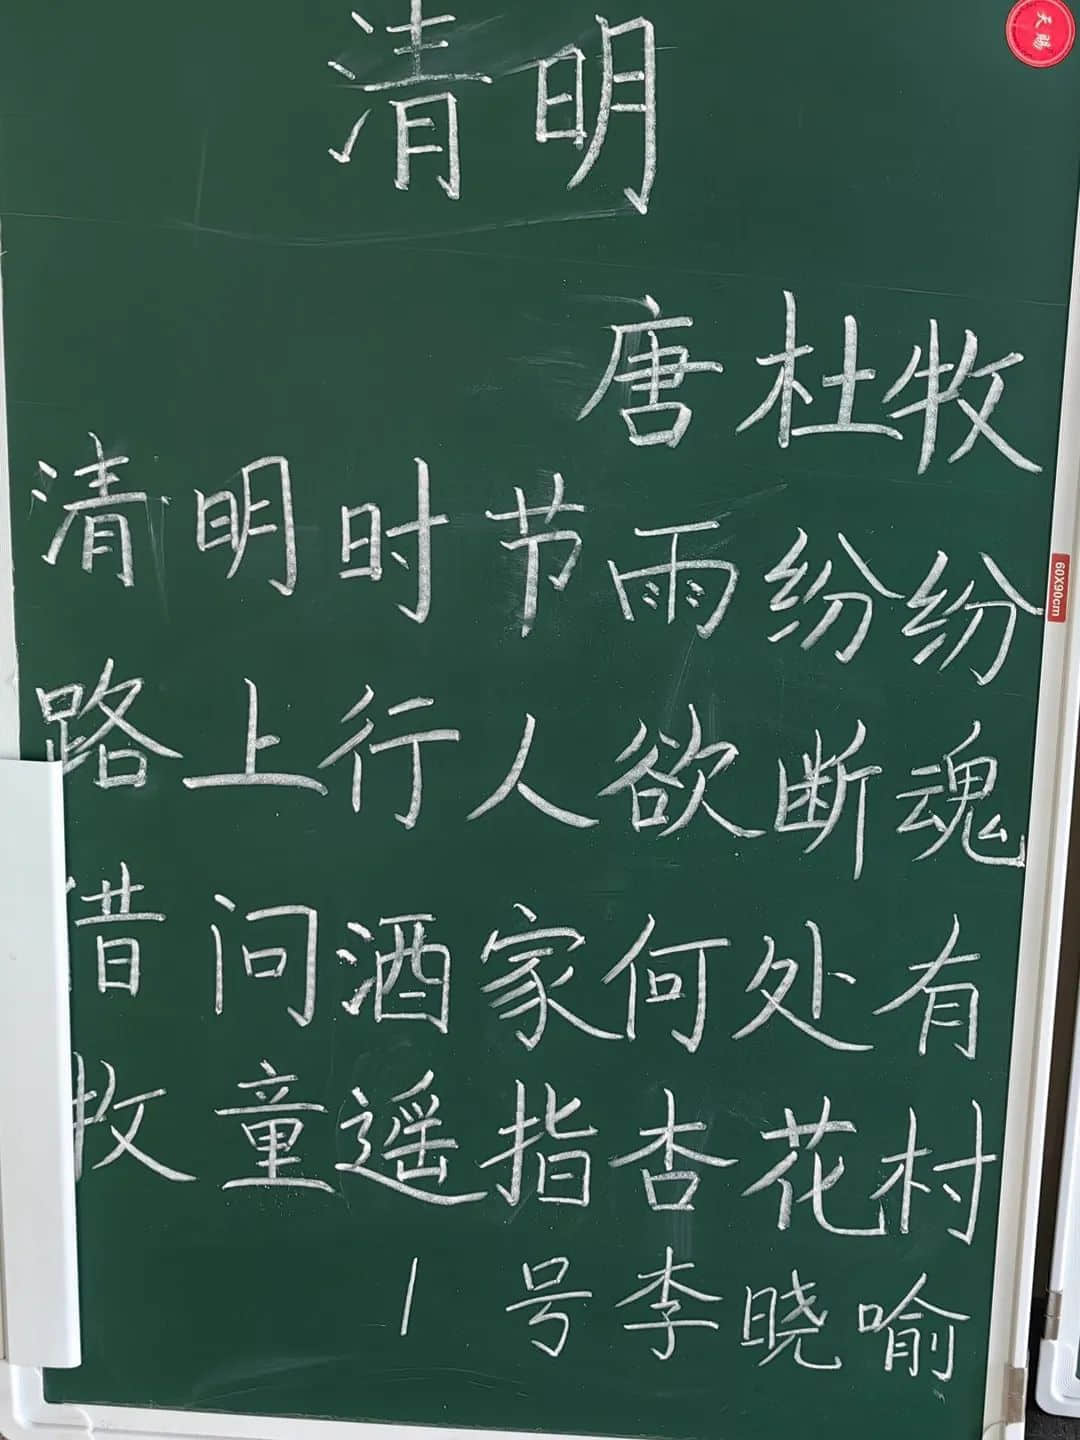 天赐
清明
唐杜牧
清明时节雨纷纷
60X90cm
路上行人欲断魂
借问酒家何处有
牧童遥指杏花村
1号李晓喻